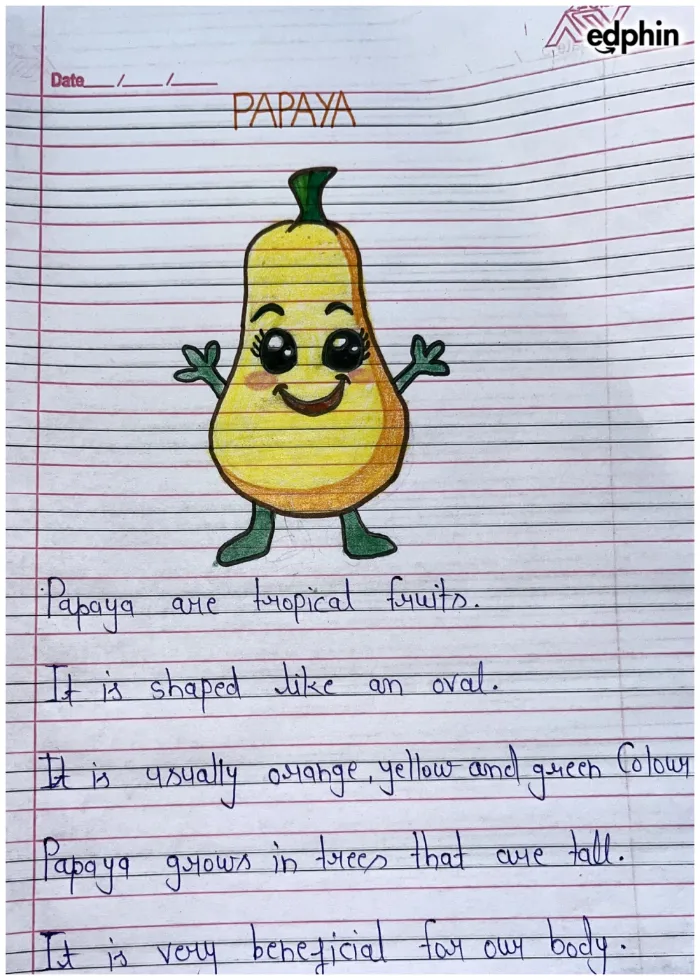 edphin
Date__/__/__
PAPAYA
Papaya are tropical fruits.
It is shaped like an oval.
It is usually orange, yellow and green Colour
Papaya grows in trees that are tall.
It is very beneficial for our body.